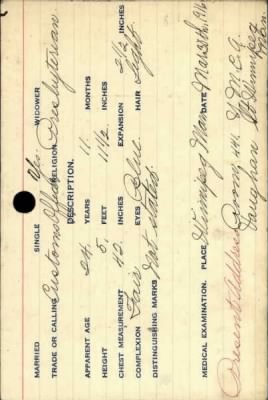 MARRIED SINGLE Yes. WIDOWER
TRADE OR CALLING Customs Officer RELIGION Presbyterian
DESCRIPTION.
APPARENT AGE 24 YEARS 11 MONTHS
HEIGHT 5 FEET 11 1/2 INCHES
CHEST MEASUREMENT 42 INCHES EXPANSION 2 1/2 INCHES
COMPLEXION Fair EYES Blue HAIR Light
DISTINGUISHING MARKS Not stated
MEDICAL EXAMINATION. PLACE Winnipeg Man DATE March 1916
Present Address Room, 441 Y.M.C.A
Vaughan St Winnipeg